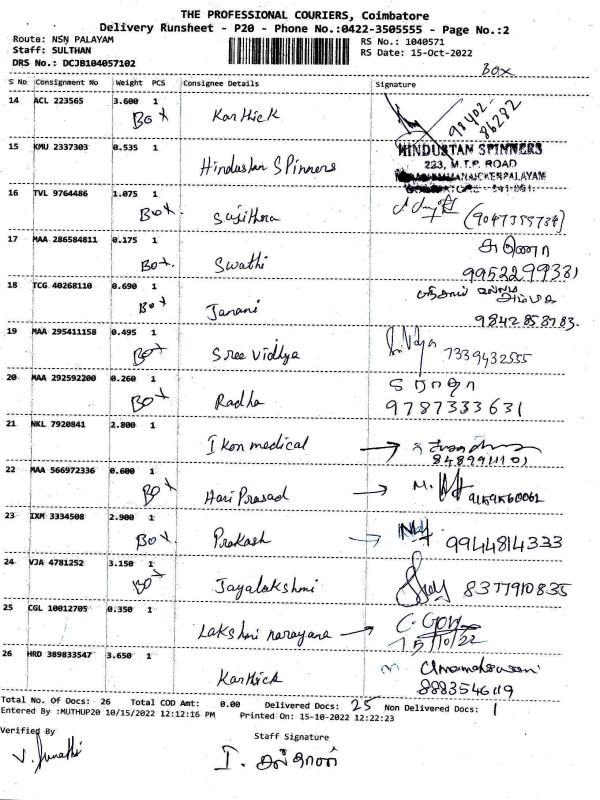 THE PROFESSIONAL COURIERS, Coimbatore
Delivery Runsheet - P20 - Phone No.:0422-3505555 - Page No.:2
Route: NSN PALAYAM RS No.: 1040571
Staff: SULTHAN RS Date: 15-Oct-2022
DRS No.: DCJB104057102
BOX
S No Consignment No Weight PCS Consignee Details Signature
14 ACL 223565 3.600 1
BOX Karthick 98402-86282
15 KMU 2337303 0.535 1
Hindustan Spinners HINDUSTAN SPINNERS
223, M.T.P. ROAD
16 TVL 9764486 1.075 1
BOX Sajithra (9047355734)
17 MAA 286584811 0.175 1
BOX. Swathi அருணா
9952299381
18 TCG 40268110 0.690 1
BOX Janani அம்மா
9842858783.
19 MAA 295411158 0.495 1
BOX Sree vidhya Sri Vidya 7339432555
20 MAA 292592200 0.260 1
BOX Radha ராதா
9787333631
21 NKL 7920841 2.800 1
Ikon medical →
8489911101
22 MAA 566972336 0.600 1
BOX Hari Prasad → M.
23 IXM 3334508 2.900 1
BOX Prakash → 9944814333
24 VJA 4781252 3.150 1
BOX Jayalakshmi 8377910835
25 CGL 10012705 0.350 1
Lakshmi narayana → C. Gow
15/10/22
26 HRD 389833547 3.650 1
Karthick Umamaheswari
8883546119
Total No. Of Docs: 26 Total COD Amt: 0.00 Delivered Docs: 25 Non Delivered Docs: 1
Entered By :MUTHUP20 10/15/2022 12:12:16 PM Printed On: 15-10-2022 12:22:23
Verified By Staff Signature